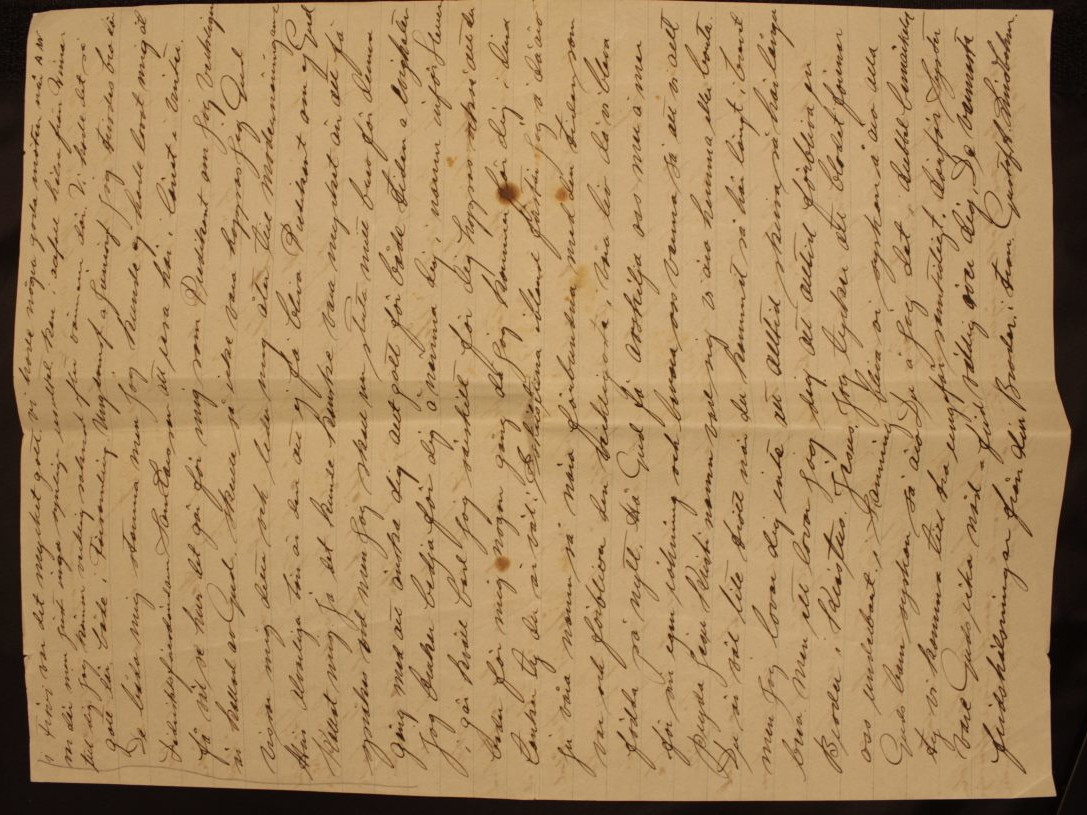 i var det mycket gott. vi hade några goda möten när
var där men just inga synliga resultat. kan i alla fall hälsa från
till dig jag känner verklig saknad efter vännerna där. Vi hade det så
gott där både i Församling Ungdomsf a Juniorf jag trivdes bra där
De båda mig stanna men jag kunde ej hade lovat mig åt
att vara här i länet i vinter.
få väl se hur det går för mig som Predikant om jag verkligen
är kallad av Gud. skulle så icke vara hoppas jag Gud
visar mig detta och leder mig åter till modernäringarna
Min allvarliga bön är den att ej få bliva Predikant om ej Gud
kallat mig ja det kunde kanske vara mycket än att få
språkas vid men jag skall nu sluta mitt brev för denna
gång med att önska dig allt gott för både tiden a evigheten
Jag brukar bedja för dig å nämna dig i namn inför
i går kväll bad jag särskilt för dig hoppas också att du
beder för mig någon gång då jag kommer för dig i dina
tankar ty du är väl i Eskilstuna ibland förstår jag å då äro
ju våra namn så nära förbundna med den tiden som
var och förbliver den verkligaste i våra liv då vi bleva
födda på nytt. Må Gud få avskilja oss mer å mer
för sin egen räkning och bevara oss varma så att vi allt
pryda Jesu Kristi namn vare sig vi äro hemma eller borta.
Du är väl lite trött när du kommit så här långt i brevet
men jag lovar dig inte att alltid skriva så här långa
brev men ett lovar jag dig att alltid förbliva en
Broder i Kristus Jesus. Jag tycker att blodet förenar
oss underbart. i Sanning bliva vi syskon å äro alla
Guds barn syskon så äro Du å jag det i dubbel bemärkelse
ty vi komma till tro ungefär samtidigt. därför Syster
vare Guds rika nåd a frid väldig över dig. De varmaste
fridshälsningar från din Broder i tron. Gustaf A. Lindbohm.